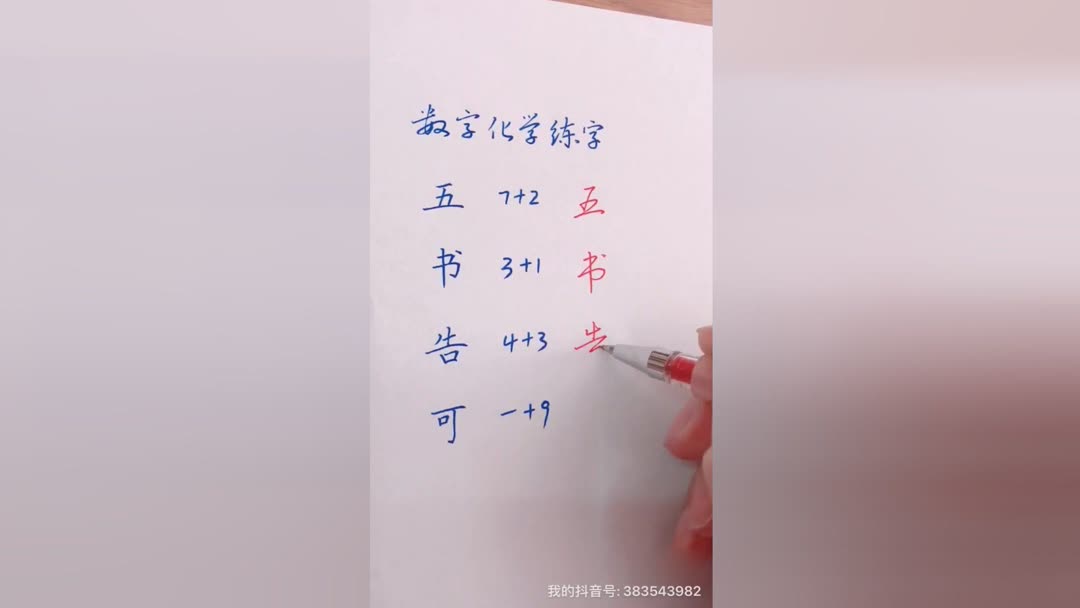 数字化学练字
五 7+2 五
书 3+1 书
告 4+3 𠂒
可 一+9
我的抖音号: 383543982